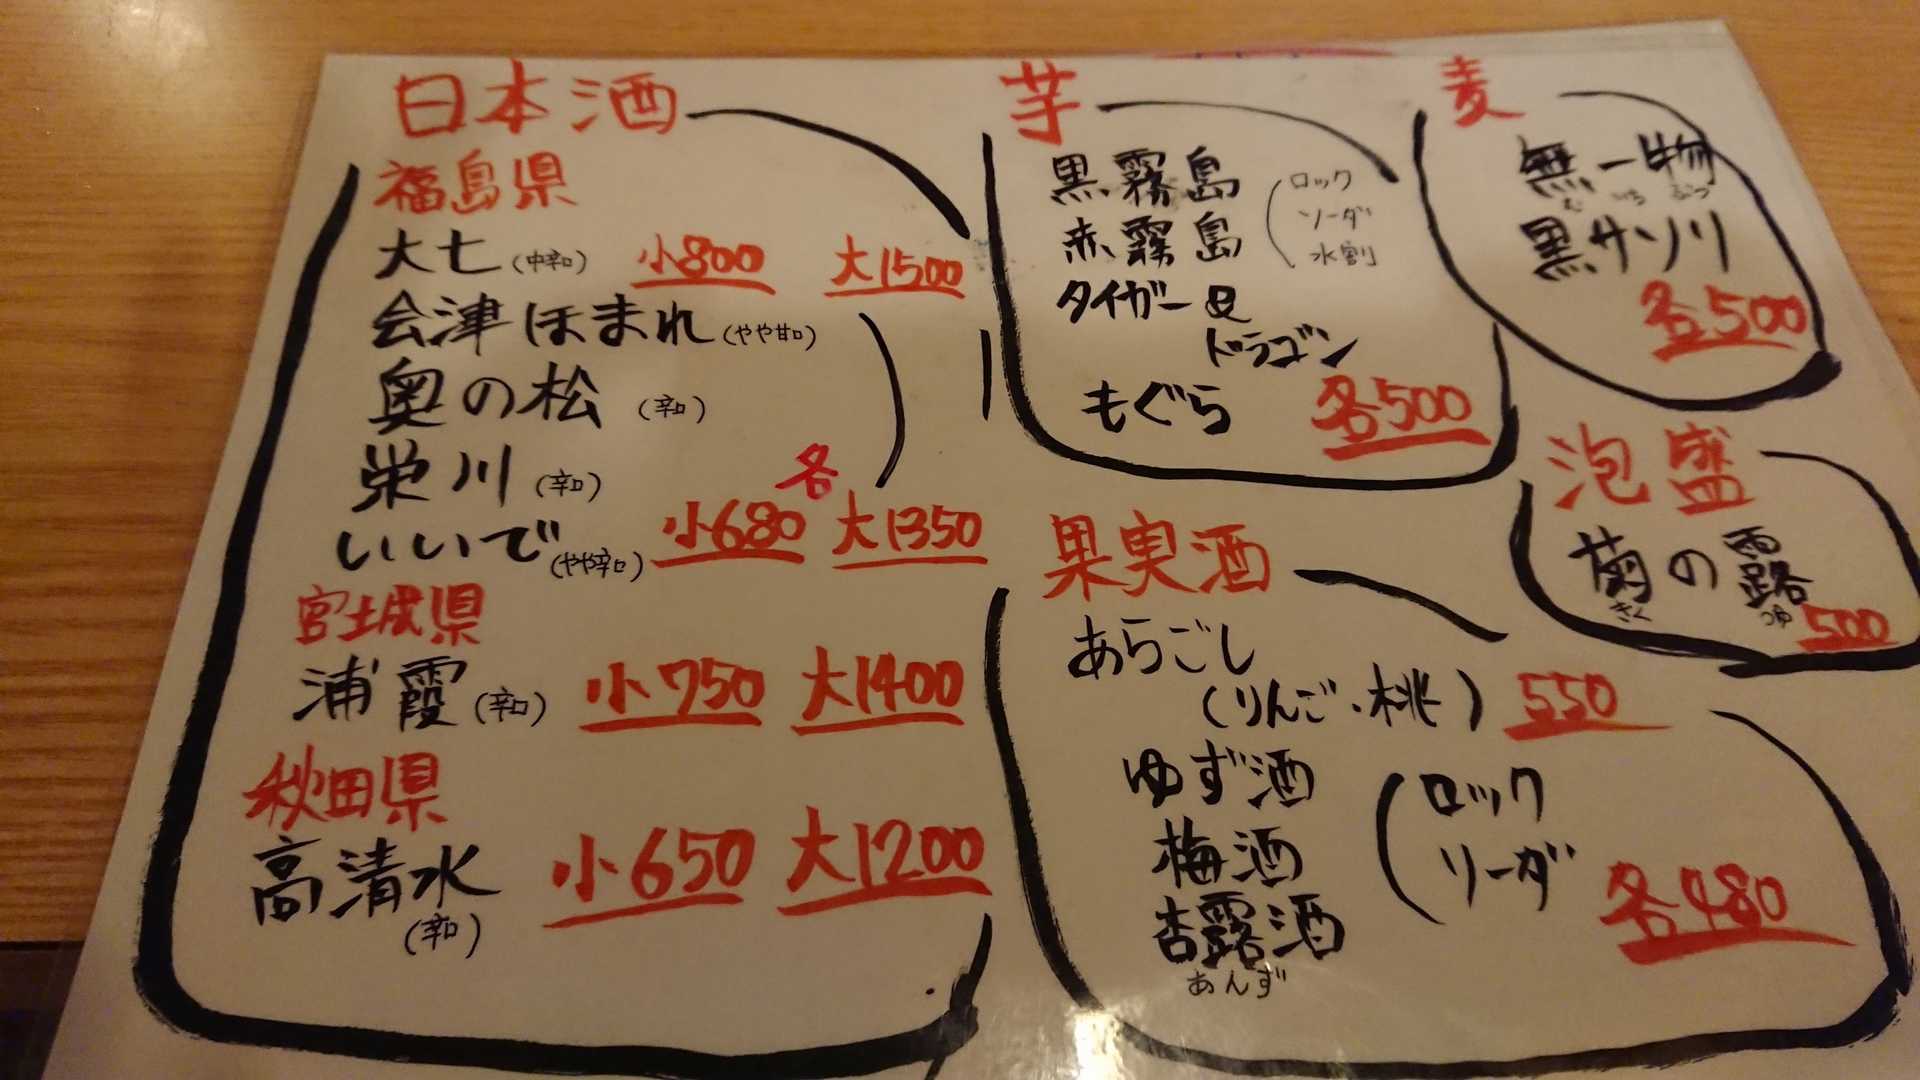 日本酒
福島県
大七(中辛口) 小800 大1500
会津ほまれ(やや甘口)
奥の松(辛口)
栄川(辛口)
各
いいで(やや辛口) 小680 大1350
宮城県
浦霞(辛口) 小750 大1400
秋田県
高清水 小650 大1200
(辛口)
芋
黒霧島
赤霧島
(ロック
ソーダ
水割
タイガー&
ドラゴン
もぐら 各500
麦
無一物
む いち ぶつ
黒サソリ
各500
泡盛
菊の露
きく つゆ
500
果実酒
あらごし
(りんご・桃) 550
ゆず酒
梅酒
杏露酒
あんず
(ロック
ソーダ
各480